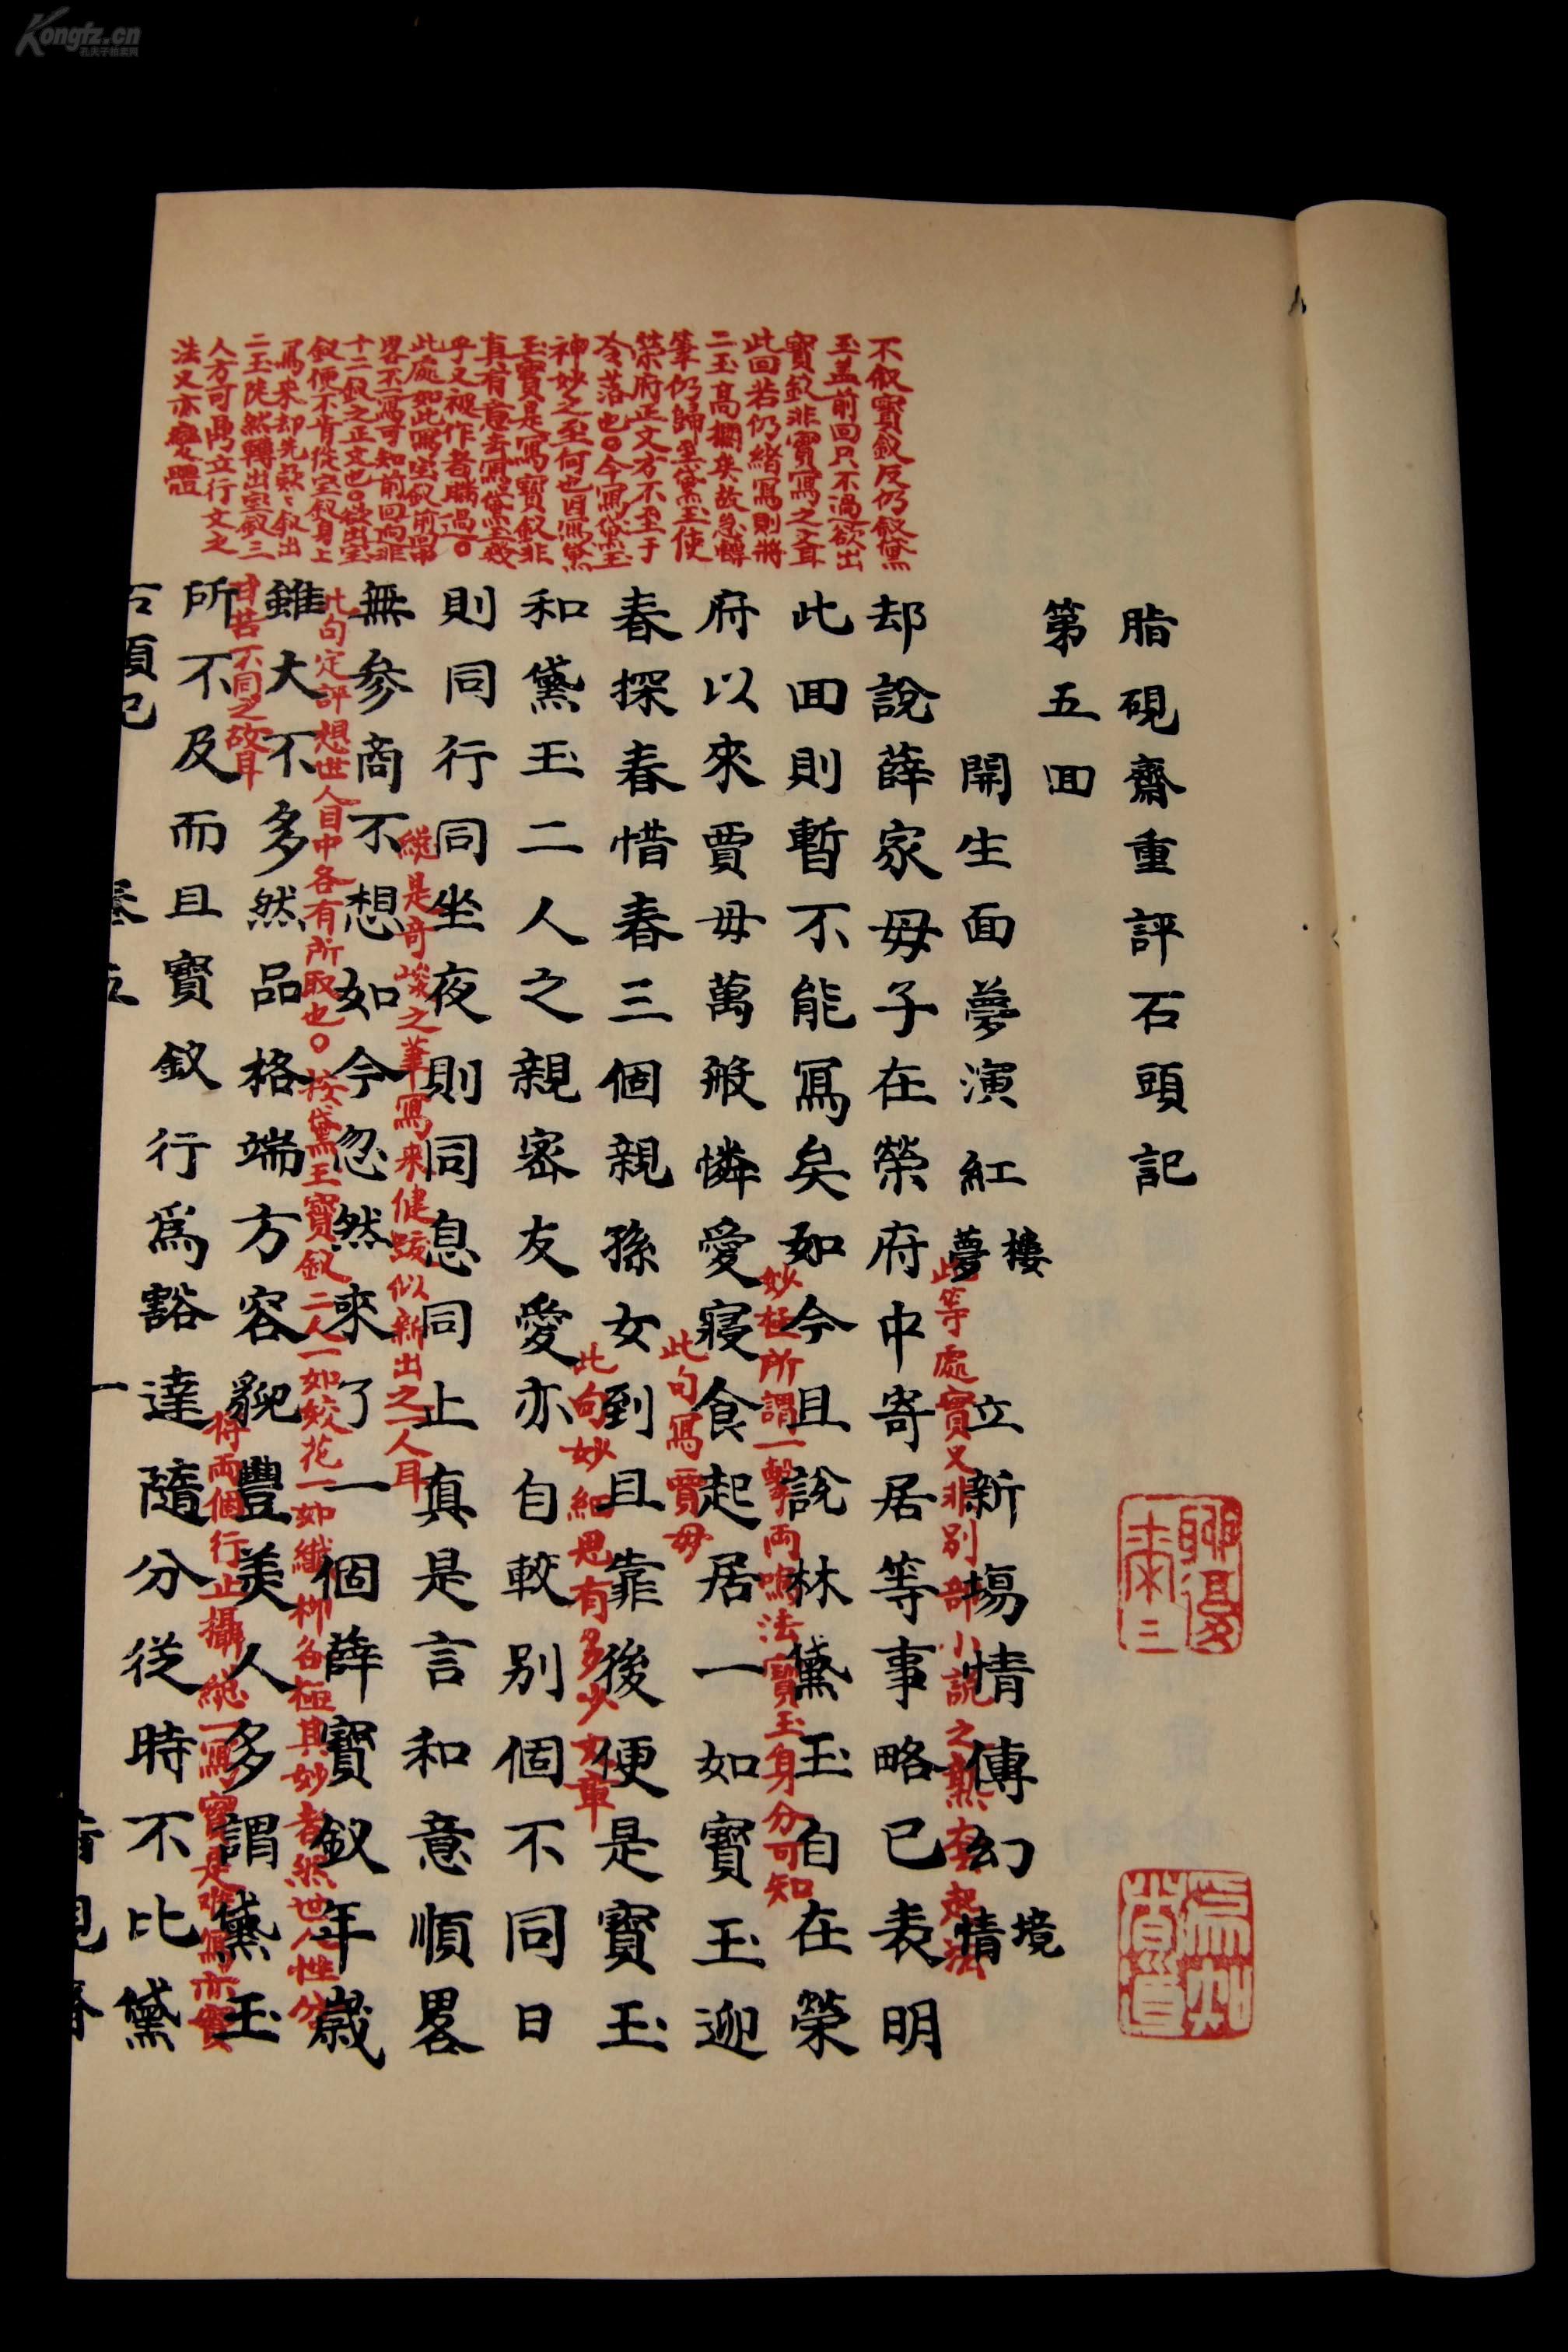 脂硯齋重評石頭記
第五回
開生面夢演紅樓夢 立新場情傳幻境情
却說薛家母子在榮府中寄居等事略已表明
此等處實又非別部小說之熟套起法
此回則暫不能寫矣如今且說林黛玉自在榮
妙極所謂一擊兩鳴法寶玉身分可知
府以來賈母萬般憐愛寢食起居一如寶玉迎
此句寫賈母
春探春惜春三個親孫女到且靠後便是寶玉
此句妙細思有多少文章
和黛玉二人之親密友愛亦自較別個不同日
則同行同坐夜則同息同止真是言和意順畧
無參商不想如今忽然來了一個薛寶釵年歲
總是奇峻之筆寫來健跋似新出之一人耳
雖大不多然品格端方容貌豐美人多謂黛玉
此句定評想世人目中各有所取也○按黛玉寶釵二人一如姣花一如纖柳各極其妙者然世人性分
甘苦不同之故耳
所不及而且寶釵行為豁達隨分從時不比黛
將兩個行止攝總一寫實是難寫亦實
不叙寶釵反仍叙黛
玉盖前回只不過欲出
寶釵非實寫之文耳
此回若仍緒寫則將
二玉高擱矣故急轉
筆仍歸至黛玉使
榮府正文方不至于
冷落也○今寫黛玉
神妙之至何也因寫黛
玉實是寫寶釵非
真有意去寫黛玉幾
乎又被作者瞞過○
此處如此寫宝釵前回中
畧不一寫可知前回迥非
十二釵之正文也○欲出宝
釵便不肯從宝釵身上
寫來却先欵欵叙出
二玉陡然轉出宝釵三
人方可鼎立行文之
法又亦變體
Kongfz.cn
孔夫子拍卖网